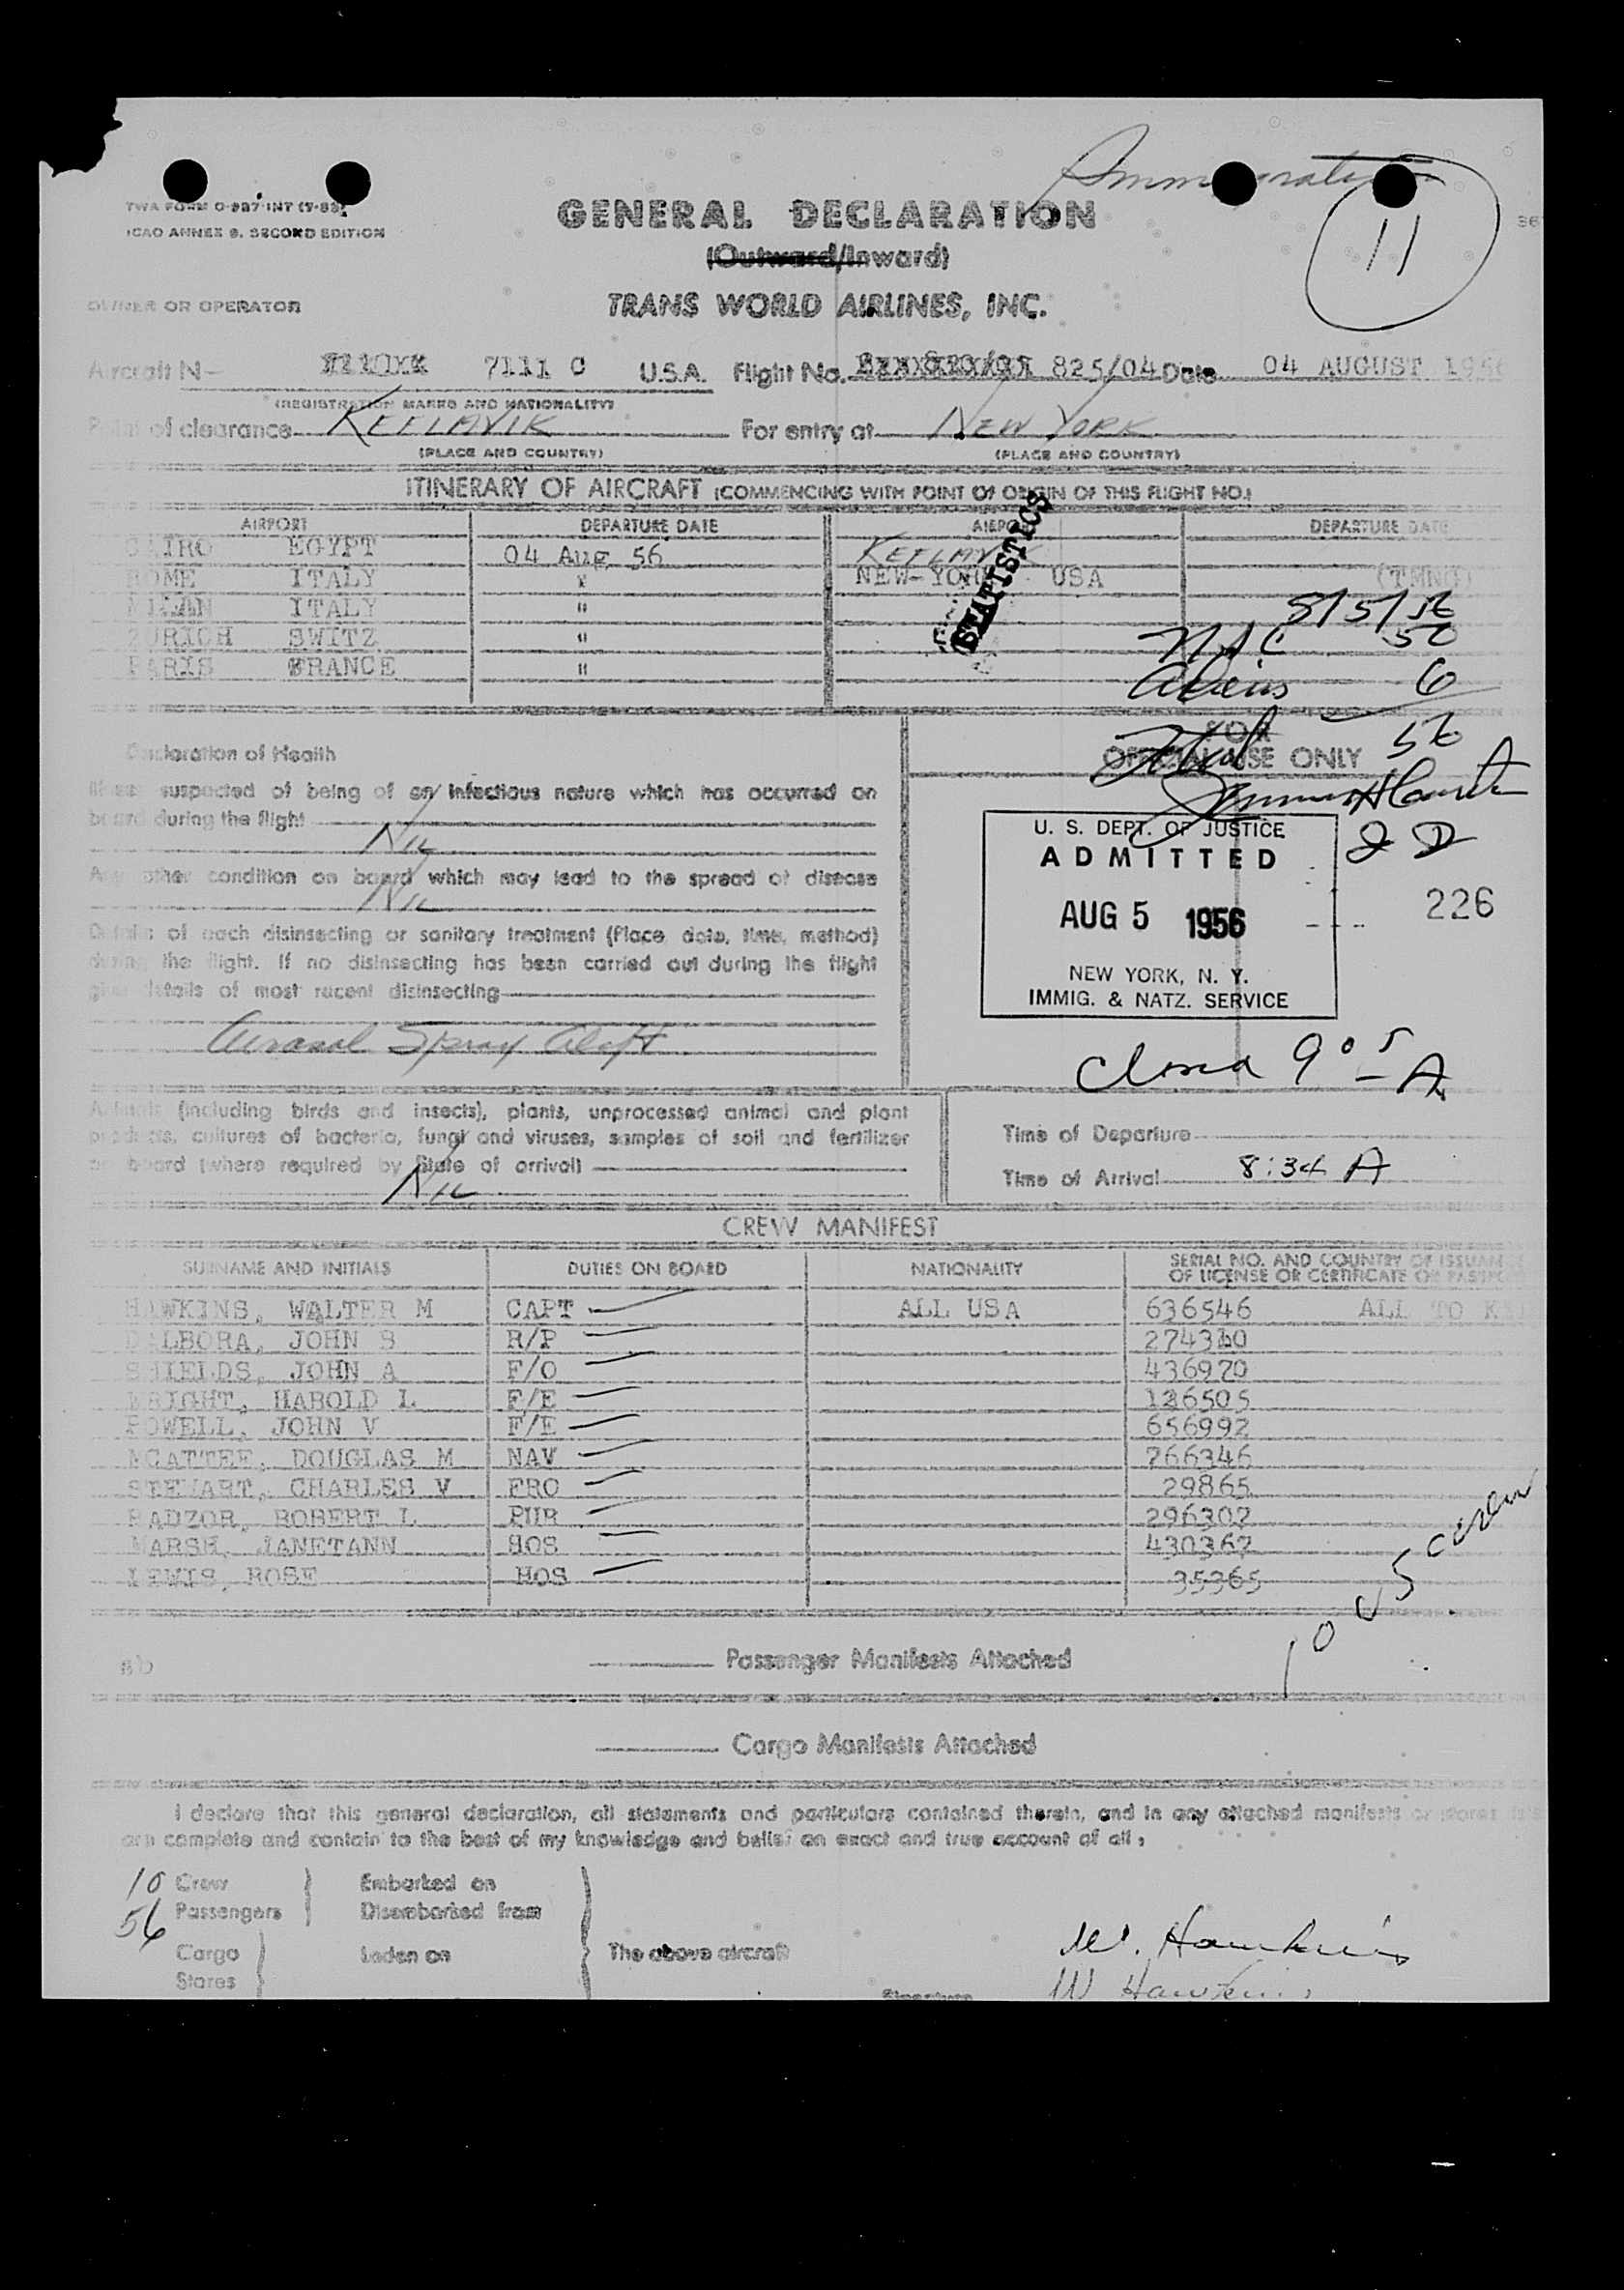 Immigration
11
TWA FORM O-
ICAO ANNEX 9, SECOND EDITION
GENERAL DECLARATION
(Outward/Inward)
OWNER OR OPERATOR
TRANS WORLD AIRLINES, INC.
Aircraft N- 7111 C U.S.A. Flight No. 825/04 Date 04 AUGUST 1956
(REGISTRATION MARKS AND NATIONALITY)
Point of clearance KEFLAVIK For entry at NEW YORK
(PLACE AND COUNTRY) (PLACE AND COUNTRY)
ITINERARY OF AIRCRAFT (COMMENCING WITH POINT OF ORIGIN OF THIS FLIGHT NO.)
AIRPORT DEPARTURE DATE AIRPORT DEPARTURE DATE
CAIRO EGYPT 04 AUG 56 KEFLAVIK
ROME ITALY " NEW-YORK USA (TMNO)
MILAN ITALY " 8/5/56
ZURICH SWITZ " 50
PARIS FRANCE " Aliens 6
STATISTICS
Total 56
FOR
OFFICIAL USE ONLY
Declaration of Health
Illness suspected of being of an infectious nature which has occurred on
board during the flight
Nil
Any other condition on board which may lead to the spread of disease
Nil
Details of each disinsecting or sanitary treatment (Place, date, time, method)
during the flight. If no disinsecting has been carried out during the flight
give details of most recent disinsecting
Aerosol Spray Aloft
U. S. DEPT. OF JUSTICE
ADMITTED
AUG 5 1956
NEW YORK, N. Y.
IMMIG. & NATZ. SERVICE
226
905 A
Animals (including birds and insects), plants, unprocessed animal and plant
products, cultures of bacteria, fungi and viruses, samples of soil and fertilizer
on board (where required by State of arrival)
Nil
Time of Departure
Time of Arrival 8:34 A
CREW MANIFEST
SURNAME AND INITIALS DUTIES ON BOARD NATIONALITY SERIAL NO. AND COUNTRY OF ISSUANCE
OF LICENSE OR CERTIFICATE OR PASSPORT
HAWKINS, WALTER M CAPT ALL USA 636546 ALL TO
DALBORA, JOHN S R/P
SHIELDS, JOHN A F/O 436970
WRIGHT, HAROLD L F/E 126505
POWELL, JOHN V F/E 656992
MCATTEE, DOUGLAS M NAV 766346
STEWART, CHARLES V FRO 29865
RADZOR, ROBERT L PUR 296307
MARSH, JANETANN HOS 430367
LEWIS, ROSE HOS 35365
10 US crew
sb
Passenger Manifests Attached
Cargo Manifests Attached
I declare that this general declaration, all statements and particulars contained therein, and in any attached manifests or stores
are complete and contain to the best of my knowledge and belief an exact and true account of all,
10 Crew Embarked on
56 Passengers Disembarked from
Cargo Laden on The above aircraft W. Hawkins
Stores
W Hawkins
Signature